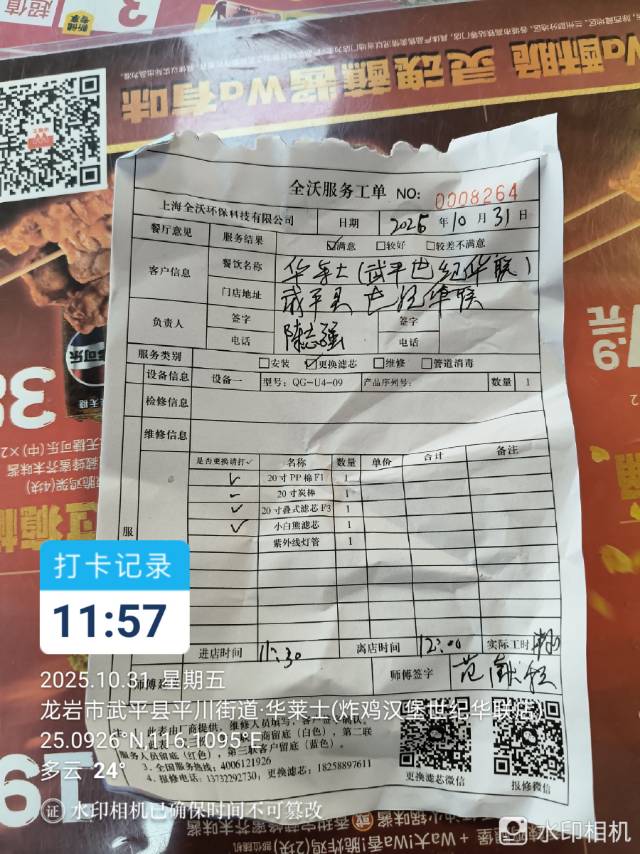 超值
3
Wa酥脆 灵魂蘸酱Wa有味
全沃服务工单 NO: 0008264
上海全沃环保科技有限公司 日期 2025 年 10 月 31 日
餐厅意见 服务结果 ☑满意 □较好 □较差不满意
客户信息 餐饮名称 华莱士(武平世纪华联)
门店地址 武平县世纪华联
负责人 签字 陈志强 签字
电话 电话
服务类别 □安装 ☑更换滤芯 □维修 □管道消毒
设备信息 设备一 型号: QG-U4-09 产品序列号: 数量 1
检修信息
维修信息
是否更换请打✓ 名称 数量 单价 合计 备注
✓ 20寸PP棉F1 1
- 20寸炭棒 1
✓ 20寸叠式滤芯F3 1
✓ 小白熊滤芯 1
紫外线灯管 1
服
进店时间 11:30 离店时间 12:00 实际工时
师傅签字
打卡记录
11:57
2025.10.31 星期五
龙岩市武平县平川街道·华莱士(炸鸡汉堡世纪华联店)
25.0926°N,116.1095°E
多云 24°
服务人员留底(红色),第三联客户留底(蓝色)。
3.全国服务热线:4006121926
4.报修电话:13732292730,更换滤芯:18258897611
更换滤芯微信
报修微信
水印相机已确保时间不可篡改
水印相机